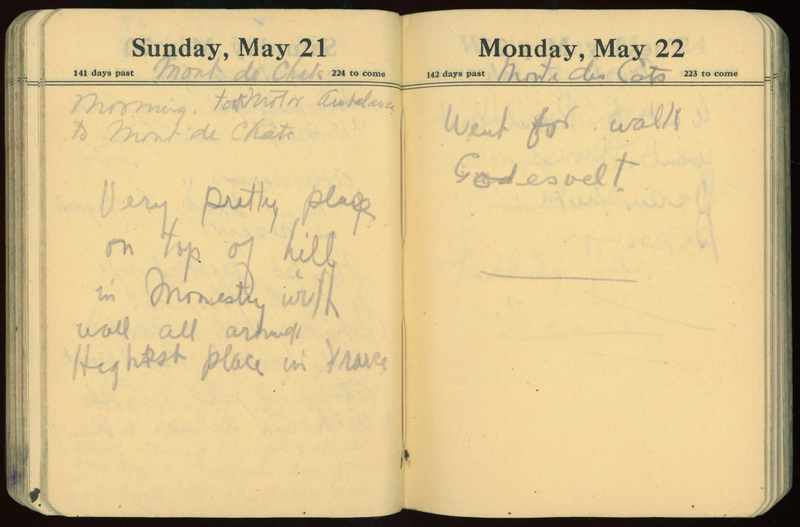 Sunday, May 21
141 days past Mont de Chats 224 to come
Morning. to Motor Ambulance
to Mont de Chats
Very pretty place
on top of hill
in Monestry with
wall all around
Highest place in France
Monday, May 22
142 days past Monte des Cats 223 to come
Went for walk
Godesvelt